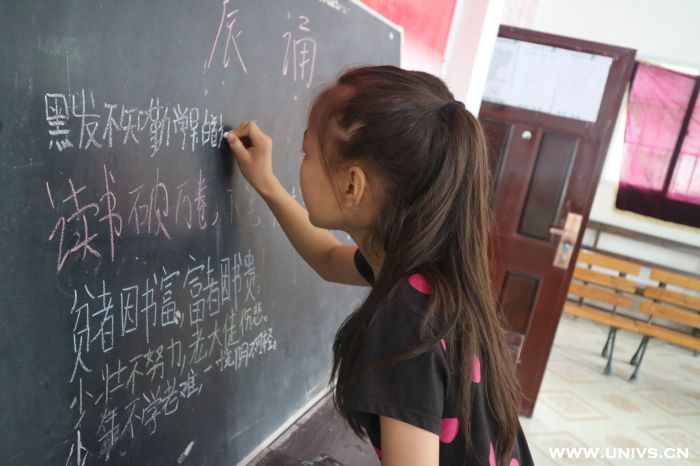 辰诵
黑发不知勤学早白
读书破万卷,
贫者因书富,富者因书贵。
少壮不努力,老大徒伤悲。
少年不学老难,一
WWW.UNIVS.CN